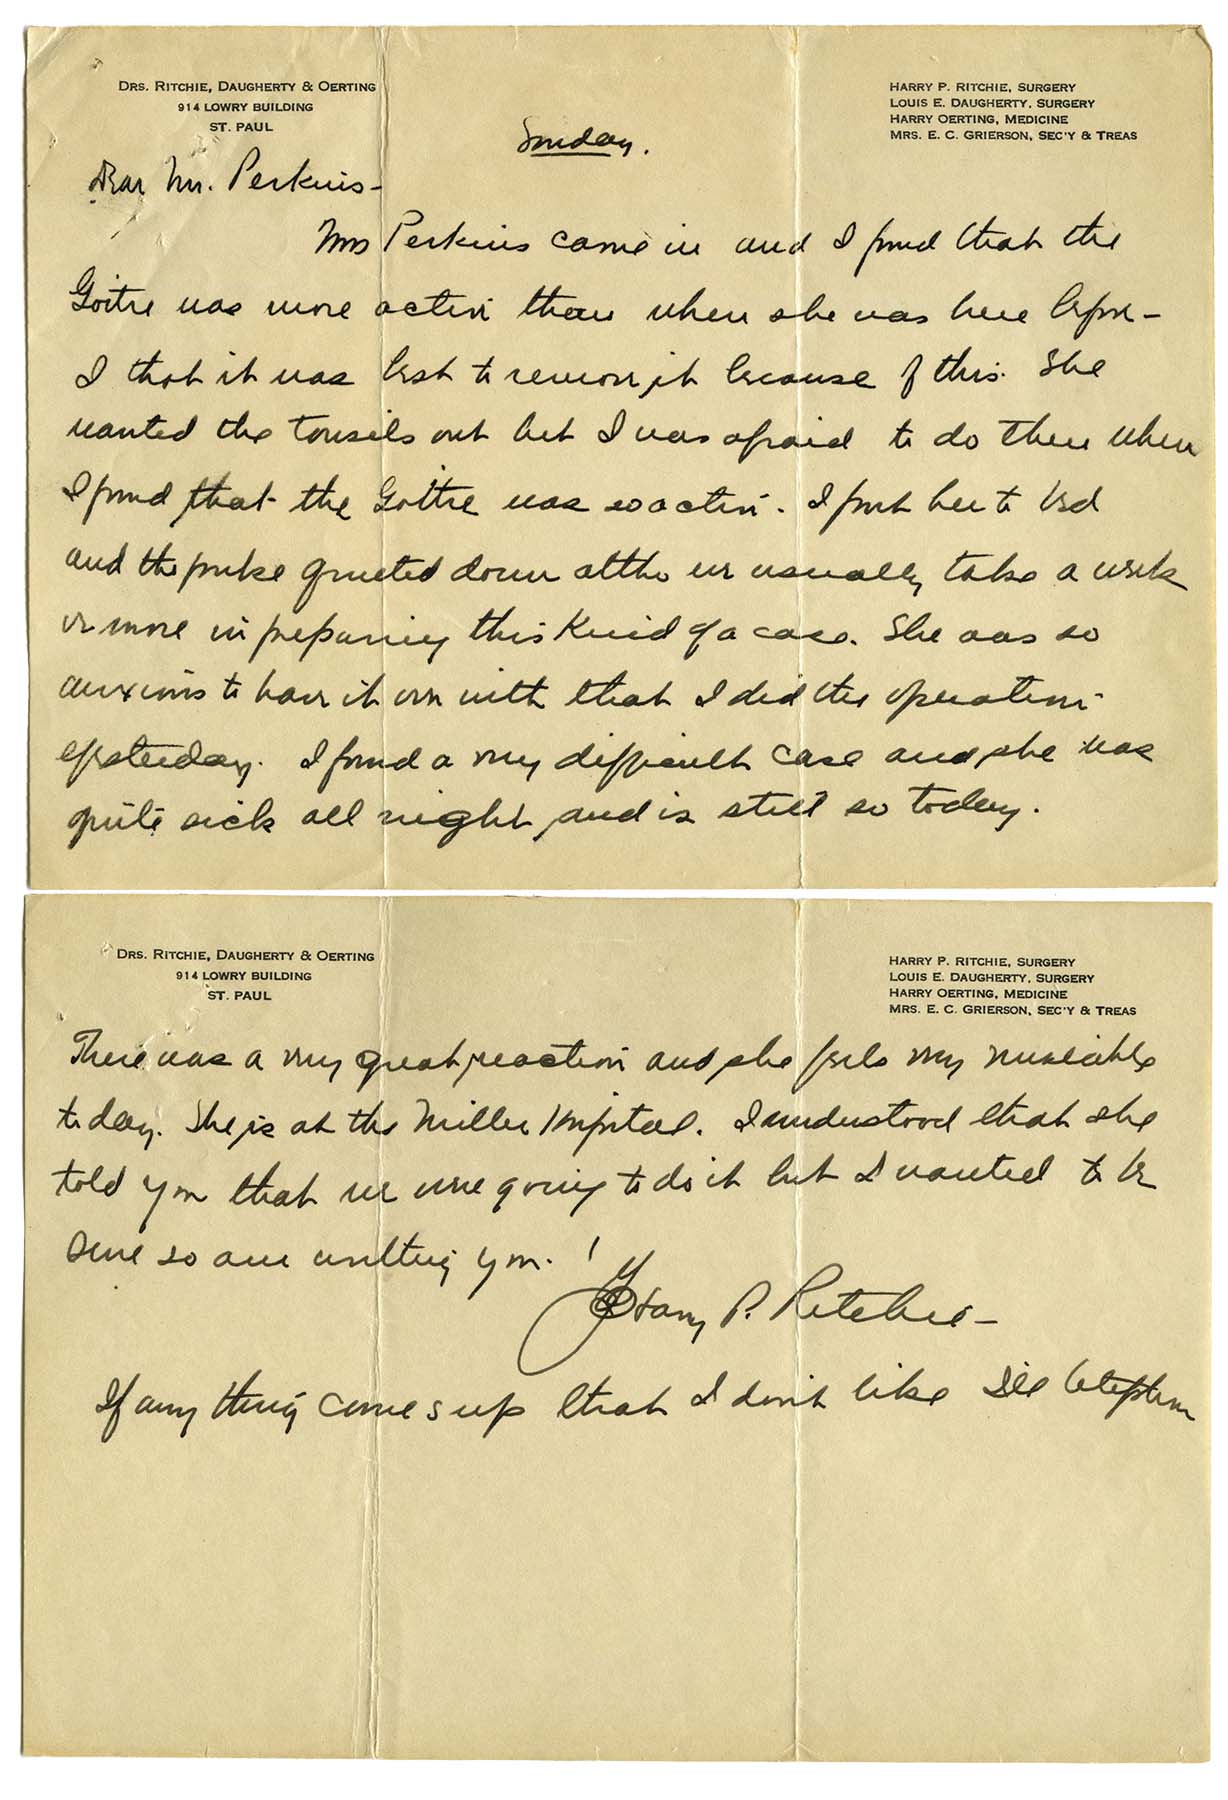 DRS. RITCHIE, DAUGHERTY & OERTING
914 LOWRY BUILDING
ST. PAUL
HARRY P. RITCHIE, SURGERY
LOUIS E. DAUGHERTY, SURGERY
HARRY OERTING, MEDICINE
MRS. E. C. GRIERSON, SEC'Y & TREAS
Sunday.
Dear Mr. Perkins-
Mrs Perkins came in and I found that the
Goitre was more active than when she was here before-
I that it was best to remove it because of this. She
wanted the tonsils out but I was afraid to do them when
I found that the Goitre was so active. I put her to bed
and the pulse quieted down altho we usually take a week
or more in preparing this kind of a case. She was so
anxious to have it over with that I did the operation
yesterday. I found a very difficult case and she was
quite sick all night and is still so today.
DRS. RITCHIE, DAUGHERTY & OERTING
914 LOWRY BUILDING
ST. PAUL
HARRY P. RITCHIE, SURGERY
LOUIS E. DAUGHERTY, SURGERY
HARRY OERTING, MEDICINE
MRS. E. C. GRIERSON, SEC'Y & TREAS
There was a very great reaction and she feels very miserable
today. She is at the Miller Hospital. I understood that she
told you that we were going to do it but I wanted to be
sure so am writing you.
Harry P. Ritchie-
If anything comes up that I don't like I'll telephone